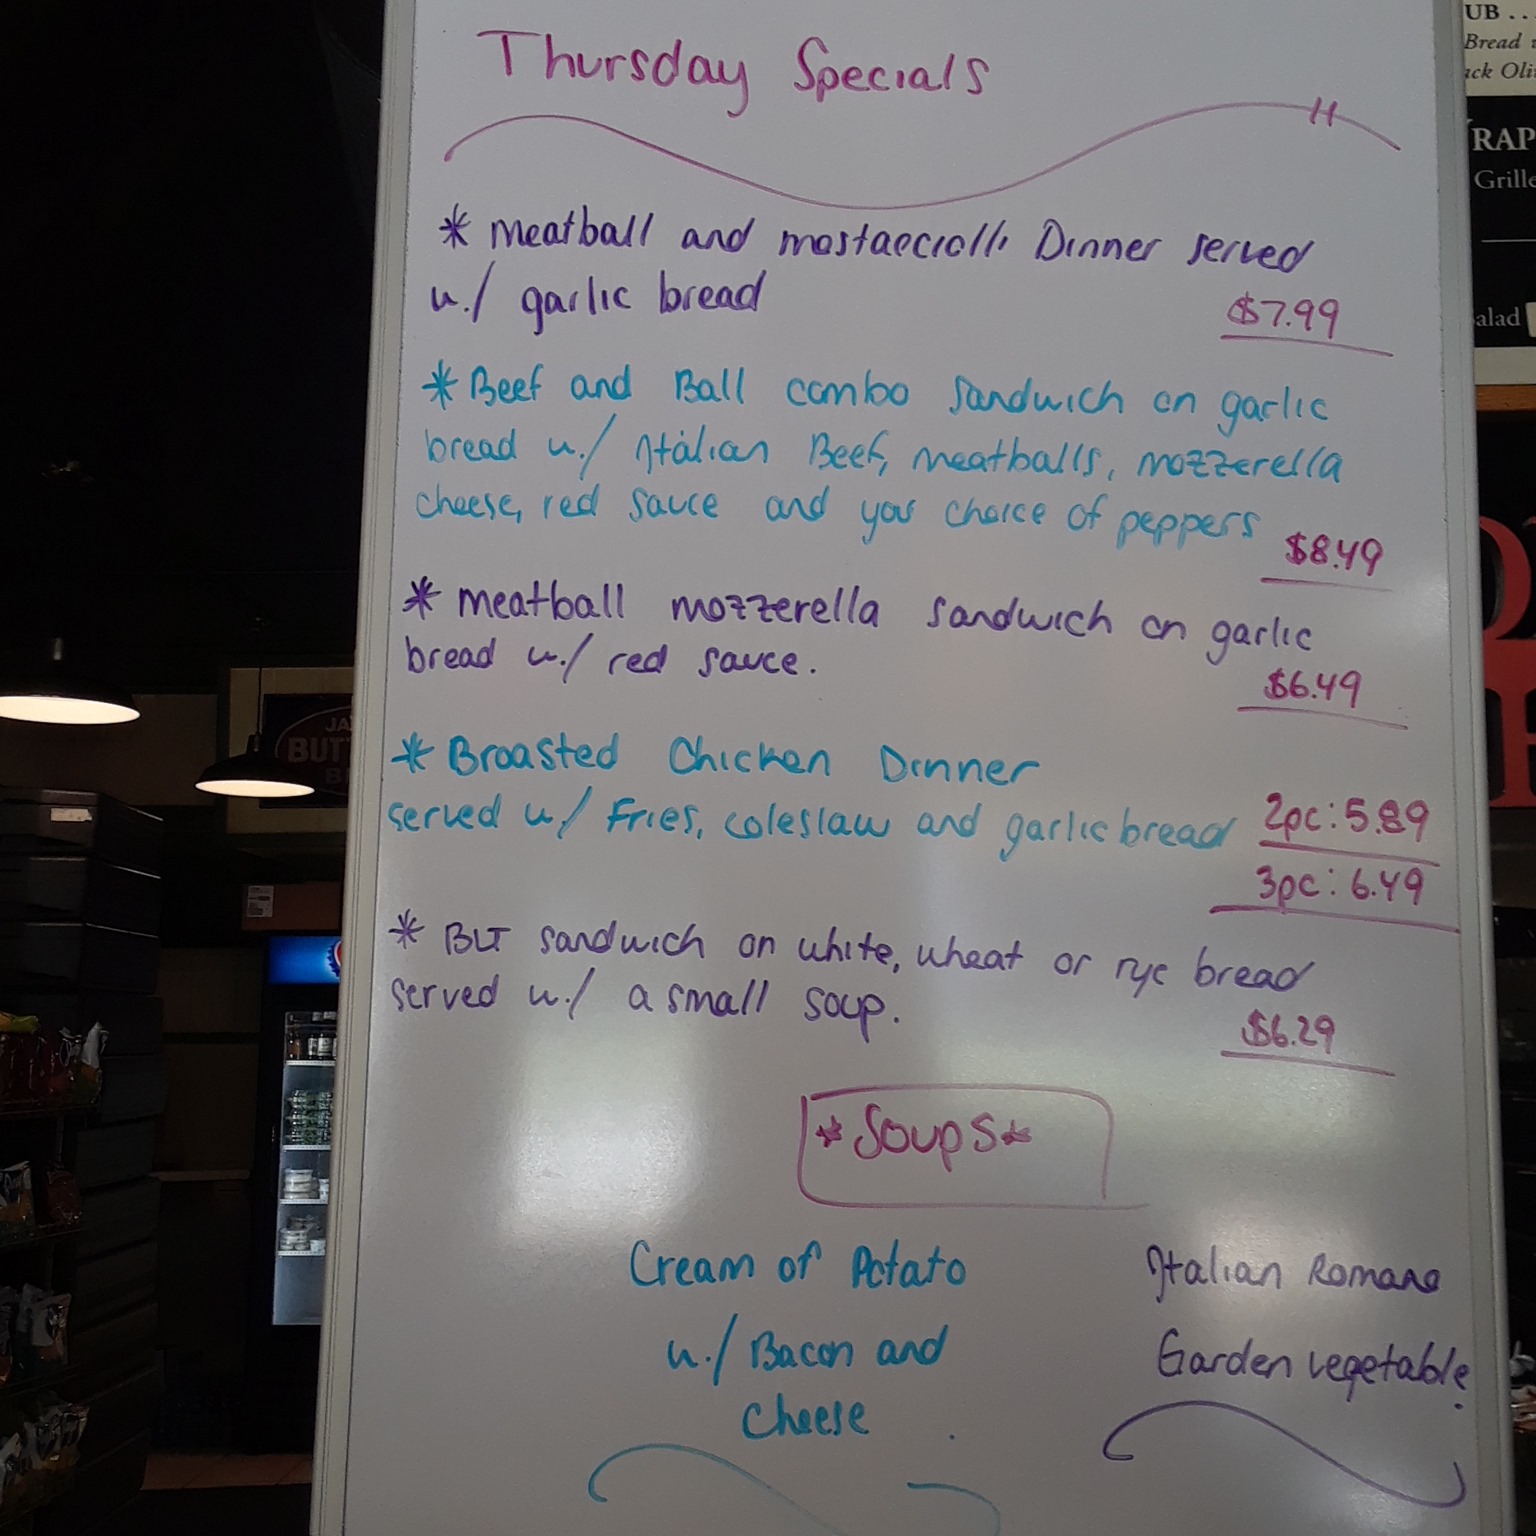 Thursday Specials
* meatball and mostacciolli Dinner served
w./ garlic bread
$7.99
* Beef and Ball combo sandwich on garlic
bread w./ Italian Beef, meatballs, mozzerella
cheese, red sauce and your choice of peppers
$8.49
* meatball mozzerella sandwich on garlic
bread w./ red sauce.
$6.49
* Broasted Chicken Dinner
served w/ Fries, coleslaw and garlic bread
2pc: 5.89
3pc: 6.49
* BLT sandwich on white, wheat or rye bread
served w./ a small soup.
$6.29
*Soups*
Cream of Potato
w./ Bacon and
cheese
Italian Romano
Garden vegetable
UB ..
Bread
ack Oli
RAP
Grille
alad
JA
BUTT
B